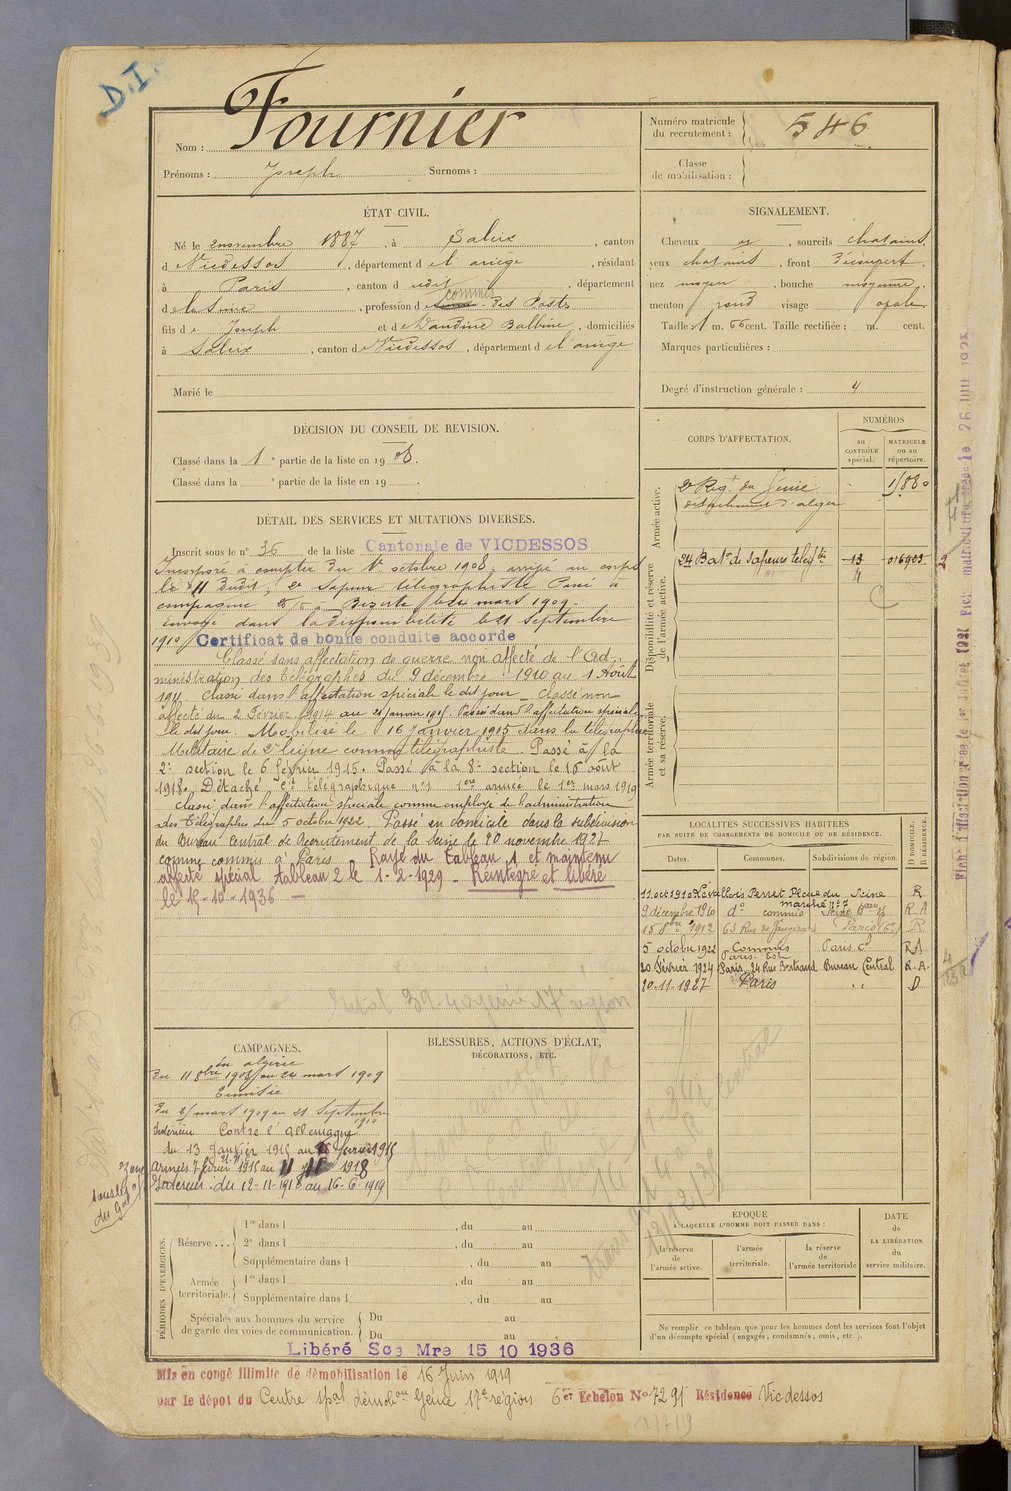 D.I.
Nom : Fournier
Prénoms : Joseph Surnoms :
Numéro matricule
du recrutement : 546
Classe
de mobilisation :
ÉTAT CIVIL.
Né le 2 novembre 1887, à Saleix, canton
d Vicdessos, département d e l'ariege, résidant
à Paris, canton d udit, département
d e la Seine, profession d commis des Postes
fils d e Joseph et d e Naudine Balbine, domiciliés
à Saleix, canton d e Vicdessos, département d e l'ariege
Marié le
SIGNALEMENT.
Cheveux et, sourcils chatains,
yeux chatains, front Découvert,
nez moyen, bouche moyenne,
menton rond visage ovale
Taille 1 m. 66 cent. Taille rectifiée : m. cent.
Marques particulières :
Degré d'instruction générale : 4
DÉCISION DU CONSEIL DE REVISION.
Classé dans la 1e partie de la liste en 1908.
Classé dans la e partie de la liste en 19 .
DÉTAIL DES SERVICES ET MUTATIONS DIVERSES.
Inscrit sous le n° 36 de la liste Cantonale de VICDESSOS
Incorporé à compter du 1er octobre 1908, arrivé au corps
le 11 dudit, 2e Sapeur télégraphiste. Passé à
compagnie Bizerte le 24 mars 1909.
envoyé dans la disponibilité le 21 Septembre
1910 Certificat de bonne conduite accordé
Classé sans affectation de guerre non affecté de l'Ad
ministration des télégraphes du 9 décembre 1910 au 1 Août
1911. Classé dans l'affectation spéciale le dit jour _ Classé non
affecté du 2 Février 1914 au 21 janvier 1915. Passé dans l'affectation spéciale
le dit jour. Mobilisé le 16 Janvier 1915 dans la télégraphie
Militaire de 2e ligne comme télégraphiste. Passé à la
2e section le 6 février 1915. Passé à la 8e section le 10 août
1918. Détaché Cie télégraphique n°1 1ère armée le 1er mars 1919
Classé dans l'affectation spéciale comme employé de l'administration
des Télégraphes du 5 octobre 1922. Passé en domicile dans la subdivision
du Bureau Central de Recrutement de la Seine le 10 novembre 1927
comme commis à Paris Rayé du tableau 1 et maintenu
affecté spécial tableau 2 le 1-2-1929 _ Réintégré et libéré
le 15-10-1936 _
39-40 génie 17e région
CORPS D'AFFECTATION.
NUMÉROS
au
CONTRÔLE
spécial.
MATRICULE
ou au
répertoire.
Armée active.
2e Regt du Génie
détachement d'alger
1/880
Disponibilité et réserve
de l'armée active.
24 Bat. de Sapeurs télégtes 13 016903
4
Armée territoriale
et sa réserve.
LOCALITÉS SUCCESSIVES HABITÉES
PAR SUITE DE CHANGEMENTS DE DOMICILE OU DE RÉSIDENCE.
Dates. Communes. Subdivisions de région. D DOMICILE. R RÉSIDENCE.
11 oct 1910 Levallois Perret Place du marché n°7 Seine R
9 décembre 1910 d° commis Seine R A
1912 63 Rue de Vaugirard Paris (6e) R
5 octobre 1922 Commis Paris Est Paris R A
20 février 1924 Paris, 24 Rue Bertrand Bureau Central R.A.
10-11-1927 Paris " D
CAMPAGNES.
En algérie
Du 11 8bre 1908 au 24 mars 1909
Tunisie
du 25 mars 1909 au 21 Septembre
1910
Intérieur Contre l'Allemagne
du 13 Janvier 1915 au février 1915
Armées 7 février 1915 au 11 1918
Intérieur. du 12-11-1918 au 16-6-1919
BLESSURES, ACTIONS D'ÉCLAT,
DÉCORATIONS, ETC.
PÉRIODES D'EXERCICES.
Réserve ...
1re dans l , du au
2e dans l , du au
Supplémentaire dans l , du au
Armée
territoriale.
1re dans l , du au
Supplémentaire dans l , du au
Spéciales aux hommes du service
de garde des voies de communication.
Du au
Du au
ÉPOQUE
À LAQUELLE L'HOMME DOIT PASSER DANS :
la réserve
de
l'armée active.
l'armée
territoriale.
la réserve
de
l'armée territoriale
DATE
de
LA LIBÉRATION
du
service militaire.
Ne remplir ce tableau que pour les hommes dont les services font l'objet
d'un décompte spécial (engagés, condamnés, omis, etc.).
Libéré Sce Mre 15 10 1936
Mis en congé illimité de démobilisation le 16 Juin 1919
par le dépôt du Centre spal démobon Génie 17e région 6er Echelon N° 7291 Résidence Vicdessos